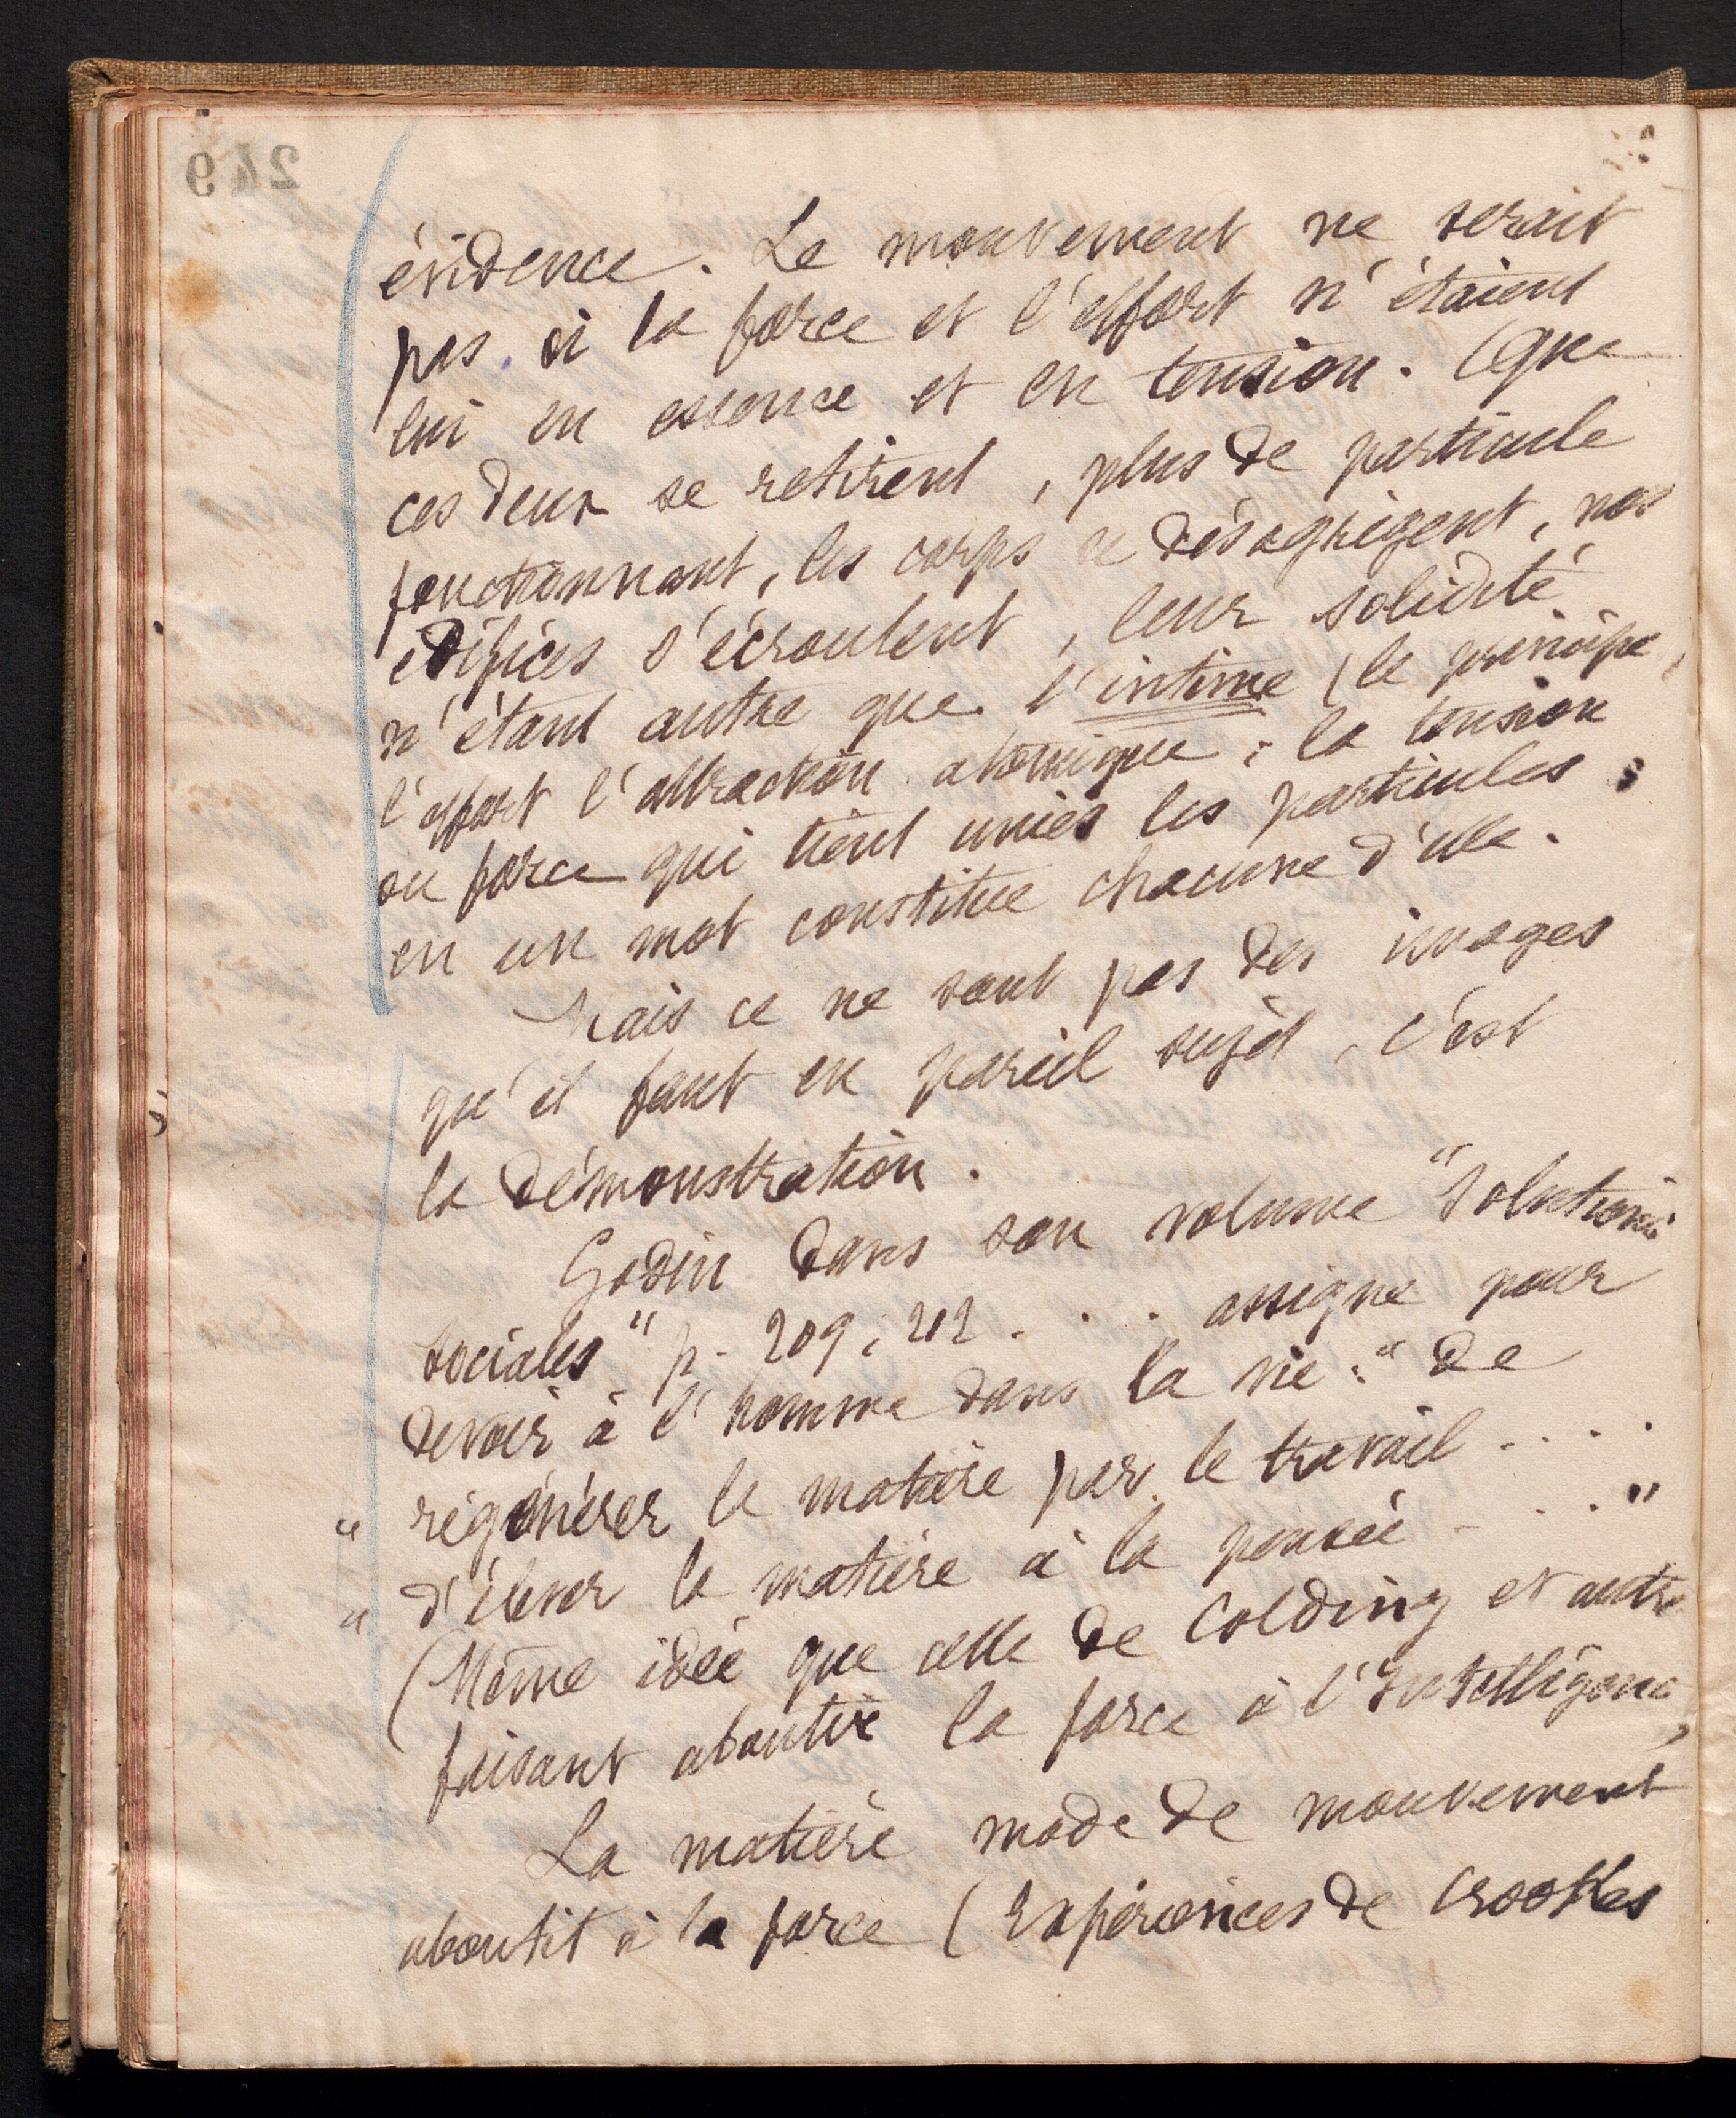 évidence. Le mouvement ne serait
pas si la force et l'effort n'étaient
lui en essence et en tension. Que
ces deux se retirent, plus de particule
fonctionnant, les corps se désagrègent, nos
édifices s'écroulent, leur solidité
n'étant autre que l'intime (le principe,
l'effort l'attraction atomique ; la tension
ou force qui tient unies les particules ;
en un mot constitue chacune d'elle.
Mais ce ne sont pas des images
qu'il faut en pareil sujet, c'est
la démonstration.
Godin dans son volume "Solutions
sociales" p. 209, 212 . . . assigne pour
devoir à l'homme dans la vie : "de
" régénérer la matière par le travail . . . .
" d'élever la matière à la pensée . . . "
(Même idée que celle de Colding et autre
faisant aboutir la force à l'Intelligence,
La matière mode de mouvement
aboutit à la force (Expériences de Crookes